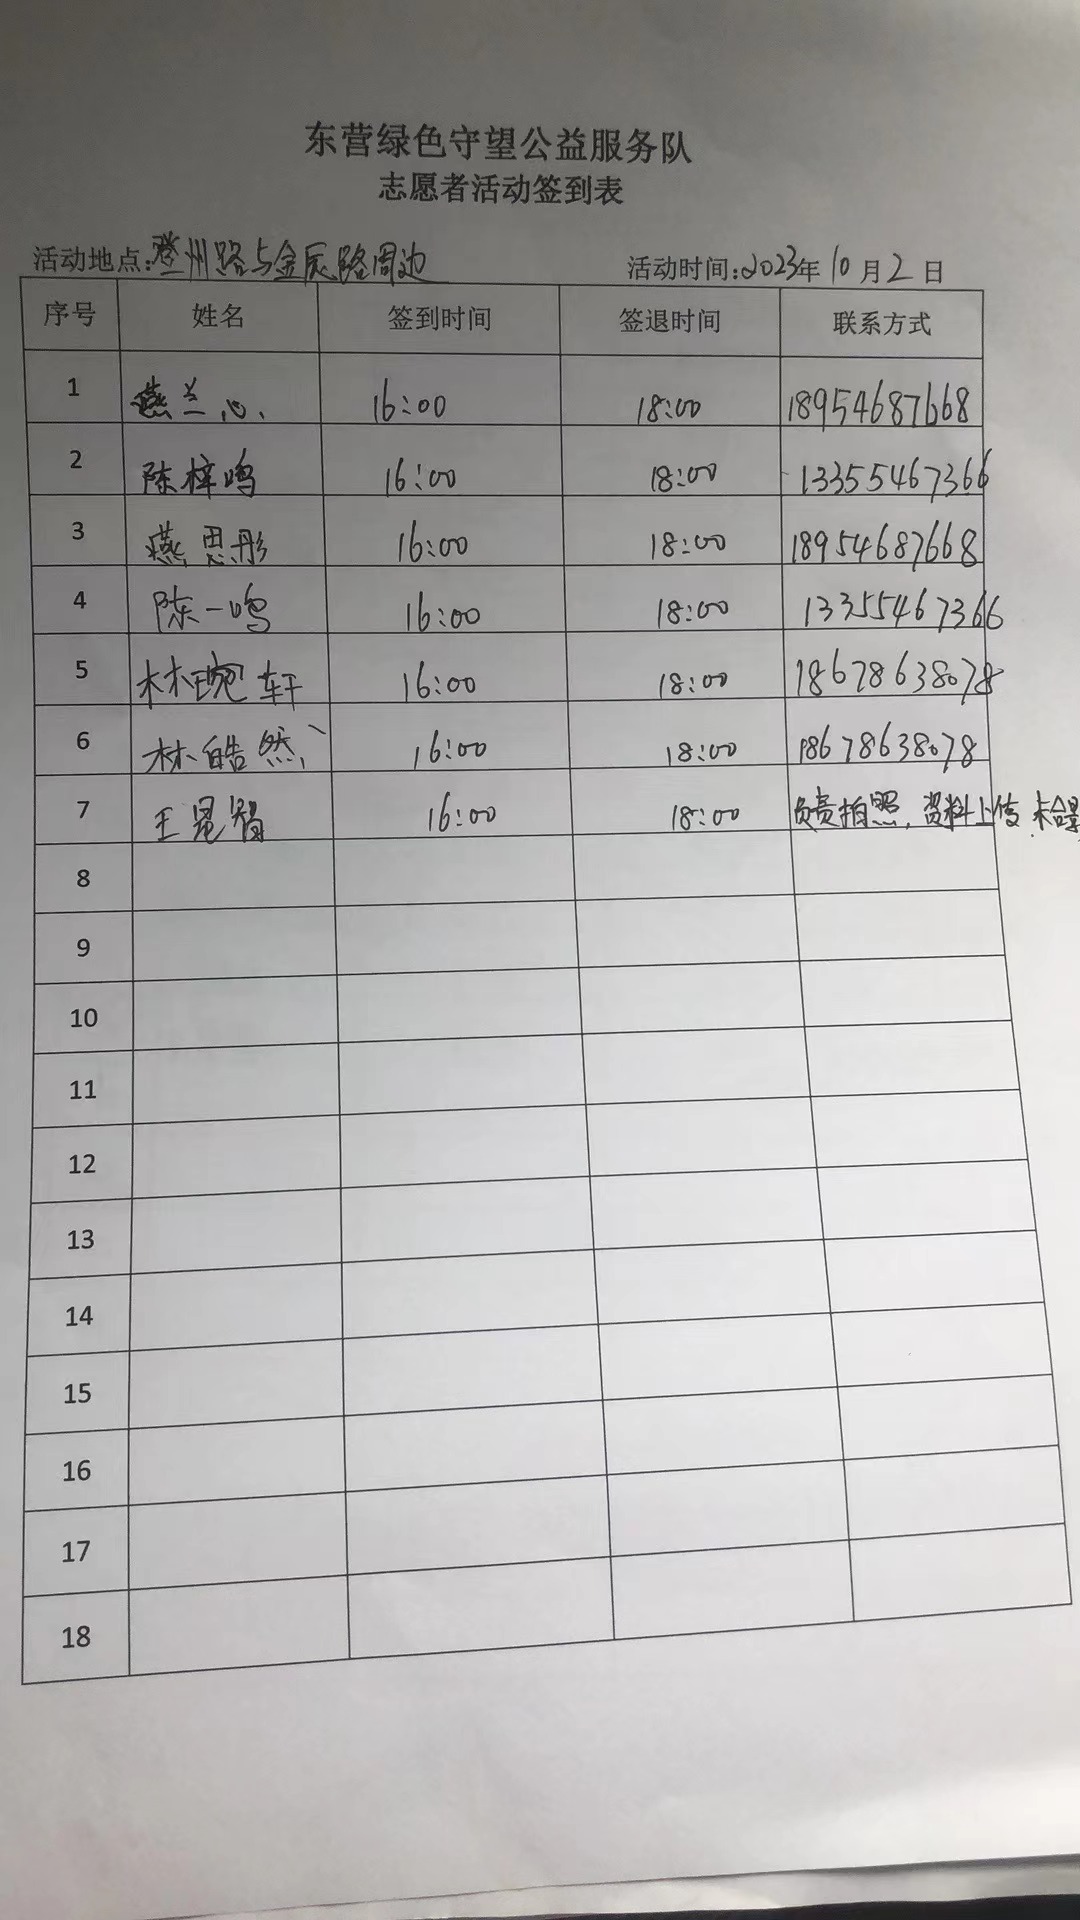 东营绿色守望公益服务队
志愿者活动签到表
活动地点:登州路与金辰路周边 活动时间:2023年10月2日
序号 姓名 签到时间 签退时间 联系方式
1 燕兰心 16:00 18:00 18954687668
2 陈梓鸣 16:00 18:00 13355467366
3 燕思彤 16:00 18:00 18954687668
4 陈一鸣 16:00 18:00 13355467366
5 林琬轩 16:00 18:00 18678638078
6 林皓然 16:00 18:00 18678638078
7 王晁智 16:00 18:00 负责拍照,资料上传 未合影
8
9
10
11
12
13
14
15
16
17
18